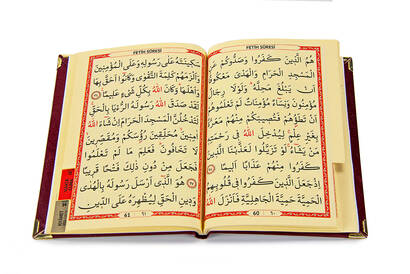 FETİH SÛRESİ
هُمُ الَّذِينَ كَفَرُوا وَصَدُّوكُمْ عَنِ
الْمَسْجِدِ الْحَرَامِ وَالْهَدْيَ مَعْكُوفًا
اَنْ يَبْلُغَ مَحِلَّهُ وَلَوْلَا رِجَالٌ
مُؤْمِنُونَ وَنِسَاءٌ مُؤْمِنَاتٌ لَمْ تَعْلَمُوهُمْ
اَنْ تَطَؤُهُمْ فَتُصِيبَكُمْ مِنْهُمْ مَعَرَّةٌ
بِغَيْرِ عِلْمٍ لِيُدْخِلَ اللهُ فِي رَحْمَتِهِ
مَنْ يَشَاءُ لَوْ تَزَيَّلُوا لَعَذَّبْنَا الَّذِينَ
كَفَرُوا مِنْهُمْ عَذَابًا اَلِيمًا ﴿٢٥﴾
اِذْ جَعَلَ الَّذِينَ كَفَرُوا فِي قُلُوبِهِمُ
الْحَمِيَّةَ حَمِيَّةَ الْجَاهِلِيَّةِ فَاَنْزَلَ اللهُ
60 ٦٠
FETİH SÛRESİ
سَكِينَتَهُ عَلَى رَسُولِهِ وَعَلَى الْمُؤْمِنِينَ
وَاَلْزَمَهُمْ كَلِمَةَ التَّقْوَى وَكَانُوا اَحَقَّ بِهَا
وَاَهْلَهَا وَكَانَ اللهُ بِكُلِّ شَيْءٍ عَلِيمًا ﴿٢٦﴾
لَقَدْ صَدَقَ اللهُ رَسُولَهُ الرُّءْيَا بِالْحَقِّ
لَتَدْخُلُنَّ الْمَسْجِدَ الْحَرَامَ اِنْ شَاءَ اللهُ
اٰمِنِينَ مُحَلِّقِينَ رُؤُسَكُمْ وَمُقَصِّرِينَ
لَا تَخَافُونَ فَعَلِمَ مَا لَمْ تَعْلَمُوا
فَجَعَلَ مِنْ دُونِ ذٰلِكَ فَتْحًا قَرِيبًا
﴿٢٧﴾ هُوَ الَّذِي اَرْسَلَ رَسُولَهُ بِالْهُدَى
وَدِينِ الْحَقِّ لِيُظْهِرَهُ عَلَى الدِّينِ
61 ٦١